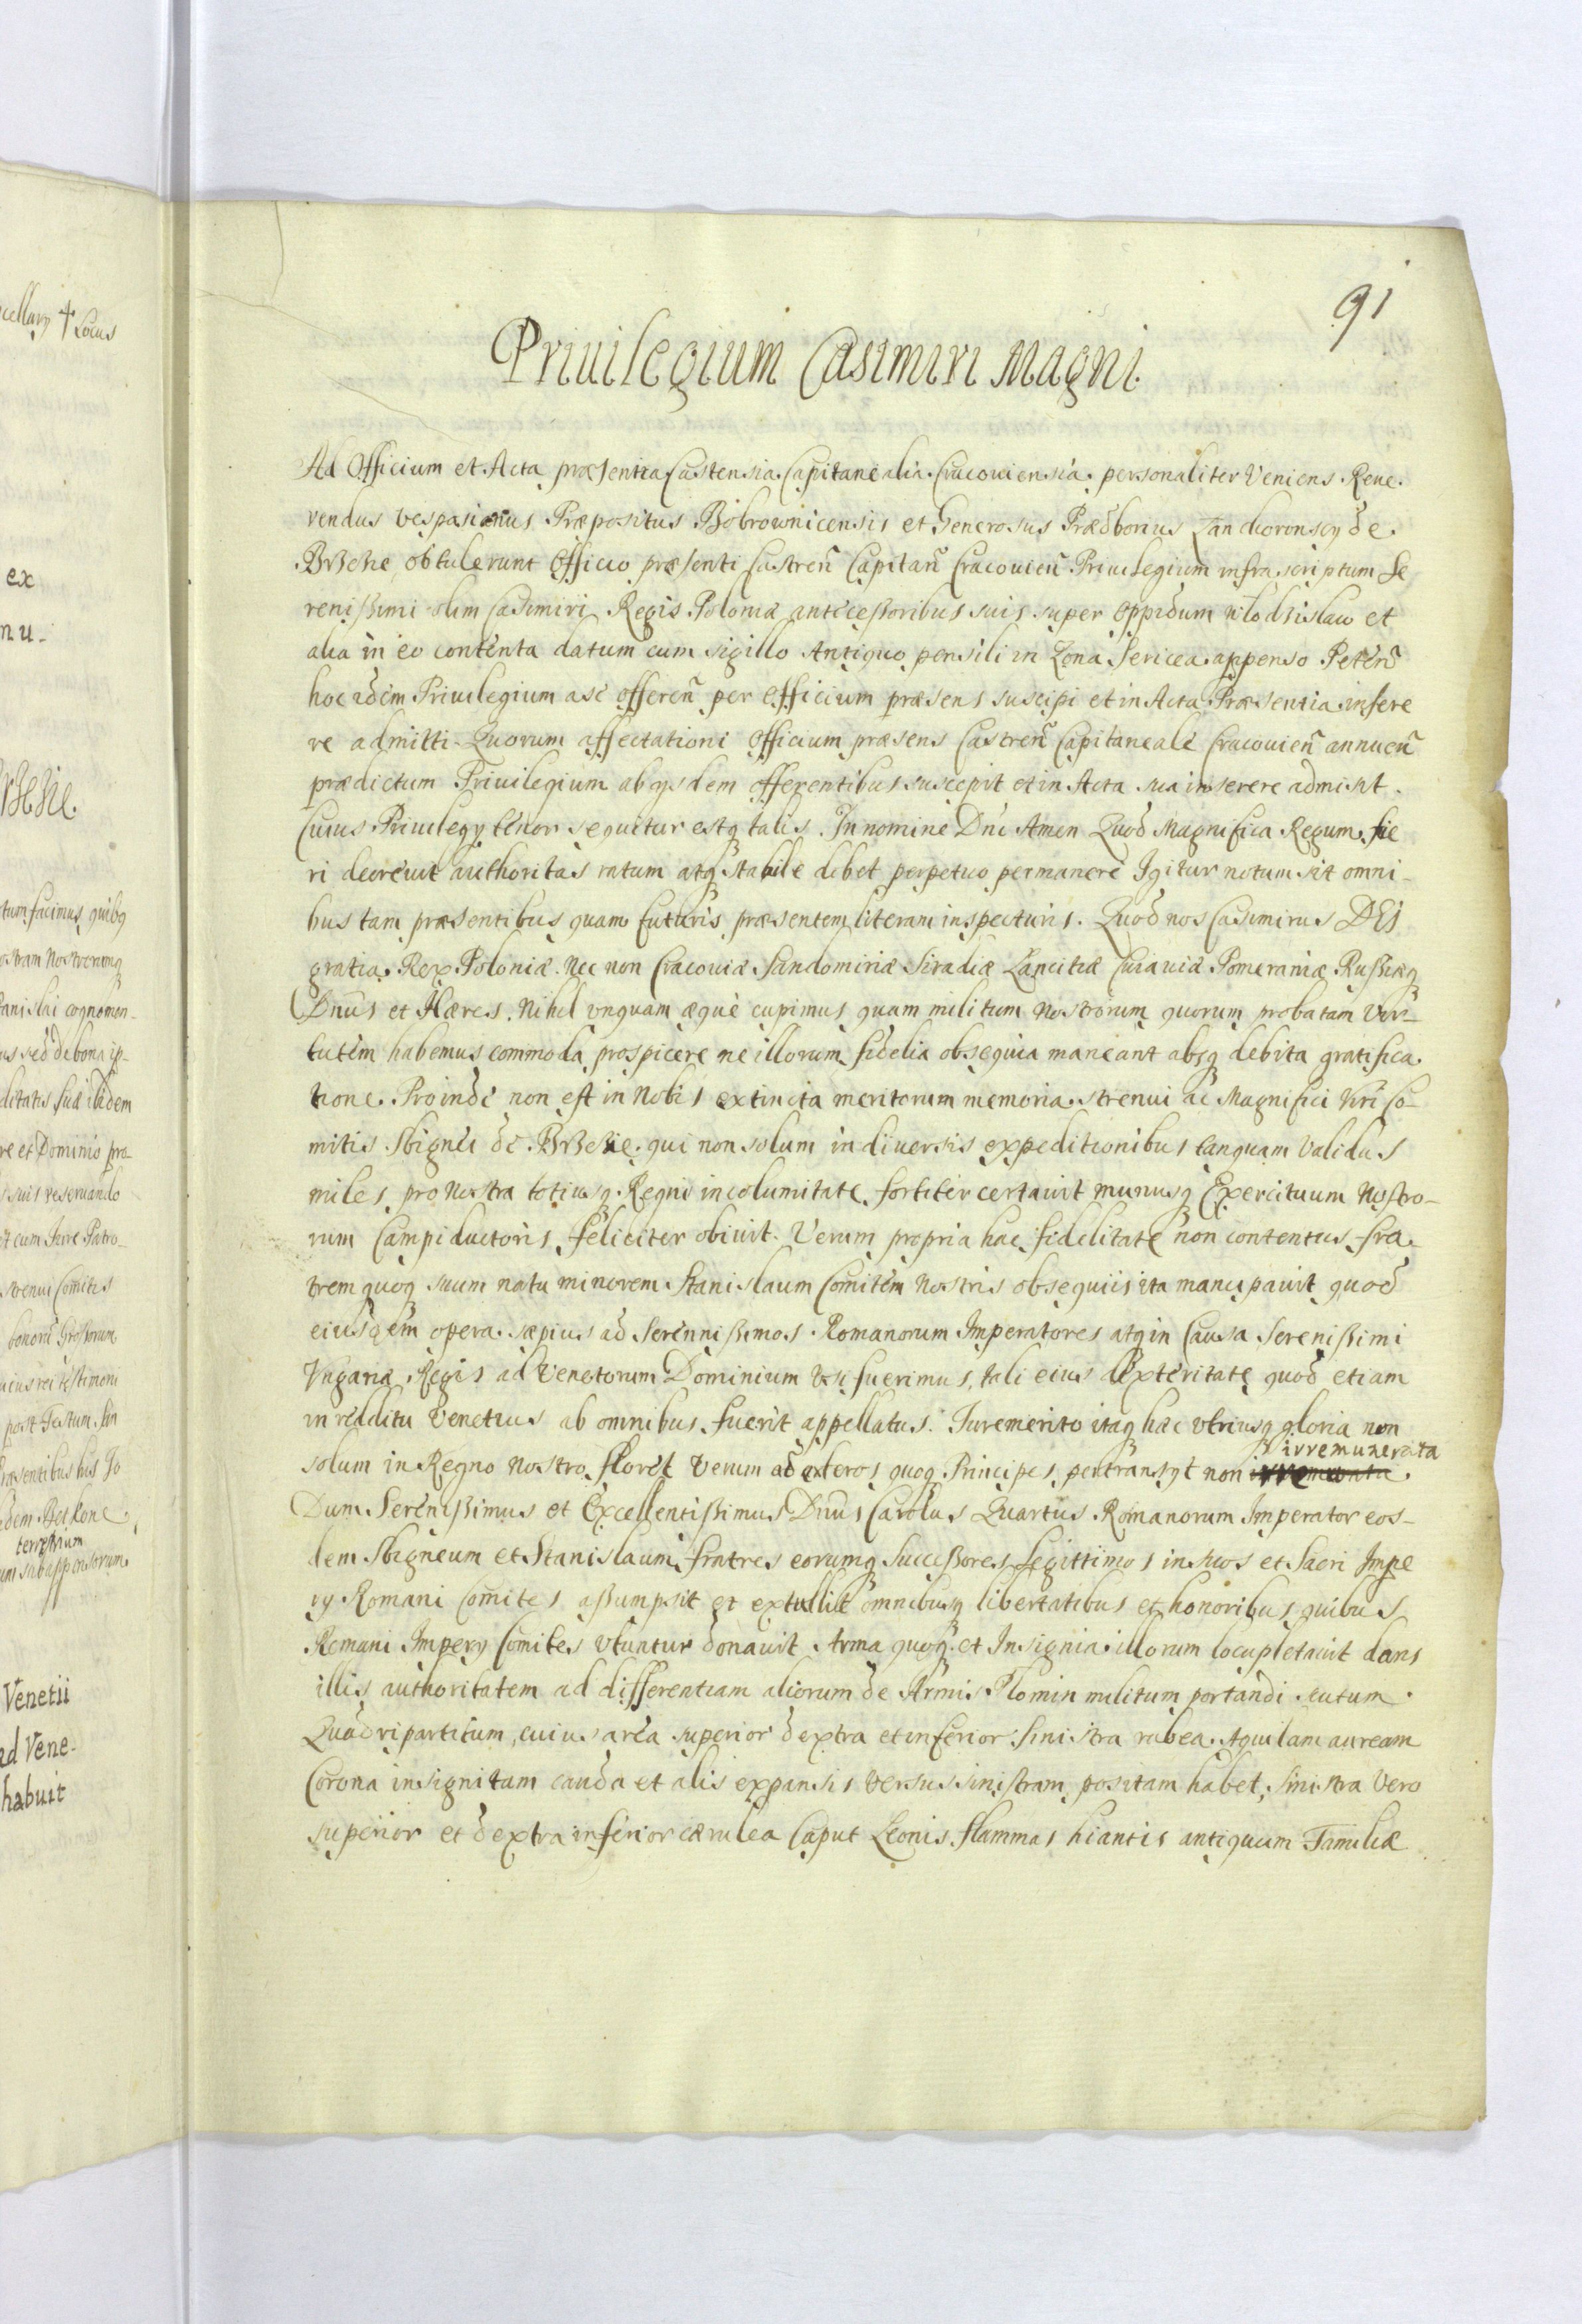 91
Priuilegium Casimiri Magni.
Ad Officium et Acta præsentia Castensia Capitanealia Cracouiensia personaliter Veniens Reue.
rendus Vespasianus Præpositus Bobrownicensis et Generosus Prædborius Lanckoronscy de
Brzezie obtulerunt Officio præsenti Castren̄ Capitan̄ Cracouien̄ Priuilegium infrascriptum Se
renißimi olim Casimiri Regis Poloniæ anteceßoribus suis super Oppidum Wlodzislaw et
alia in eo contenta datum cum sigillo Antiquo pensili in Zona Sericea appenso Peten̄
hoc idem Priuilegium a se offeren̄ per Officium præsens suscipi et in Acta Præsentia insere
re admitti. Quorum affectationi Officium præsens Castren̄ Capitaneale Cracouien̄ annuen̄
prædictum Priuilegium ab ysdem offerentibus suscepit et in Acta sua inserere admisit.
Cuius Priuilegy tenor sequitur estq talis. In nomine Dni Amen Quod Magnifica Regum fie
ri decreuit authoritas ratum atq stabile debet perpetuo permanere Igitur notum sit omni-
bus tam præsentibus quam futuris præsentem literam inspecturis. Quod nos Casimirus DEI
gratia Rex Poloniæ. Nec non Cracouiæ Sandomiriæ Siradiæ Lancitiæ Cuiauiæ Pomeraniæ Rußiæq
Dnus et Hæres. Nihil vnquam æque cupimus quam militum Nostrorum quorum probatam Vir-
tutem habemus commoda prospicere ne illorum fidelia obsequia maneant absq debita gratifica.
tione. Proinde non est in Nobis extincta meritorum memoria strenui ac Magnifici Viri Co-
mitis Sbignei de Brzezie qui non solum in diuersis expeditionibus tanquam Validus
miles pro Nostra totiusq Regni incolumitate fortiter certauit munusq Exercituum Nostro-
rum Campiductoris feliciter obiuit. Verum propria hac fidelitate non contentus fra-
trem quoq suum natu minorem Stanislaum Comitem Nostris obsequiis ita mancipauit quod
eiusdem opera sæpius ad Serennißimos Romanorum Imperatores atq in Causa Serenißimi
Vngariæ Regis ad Venetorum Dominium Vsi fuerimus, tali eius dexteritate quod etiam
in redditu Venetius ab omnibus fuerit appellatus. Iuremerito itaq hæc vtriusq gloria non
irremunerata
solum in Regno Nostro floret Verum ad exteros quoq Principes pertransyt non
Dum Serenißimus et Excellentißimus Dnus Carolus Quartus Romanorum Imperator eos-
dem Sbigneum et Stanislaum fratres eorumq Succeßores Legittimos in suos et Sacri Impe
ry Romani Comites aßumpsit et extullit omnibusq libertatibus et honoribus quibus
Romani Impery Comites vtuntur donauit Arma quoq et Insignia illorum locupletauit dans
illis authoritatem ad differentiam aliorum de Armis Plomin militum portandi scutum
Quadripartitum, cuius area superior dextra et inferior sinistra rubea Aquilam auream
Corona insignitam cauda et alis expansis versus sinistram positam habet, sinistra Vero
superior et dextra inferior cærulea Caput Leonis flammas hiantis antiquum Familiæ